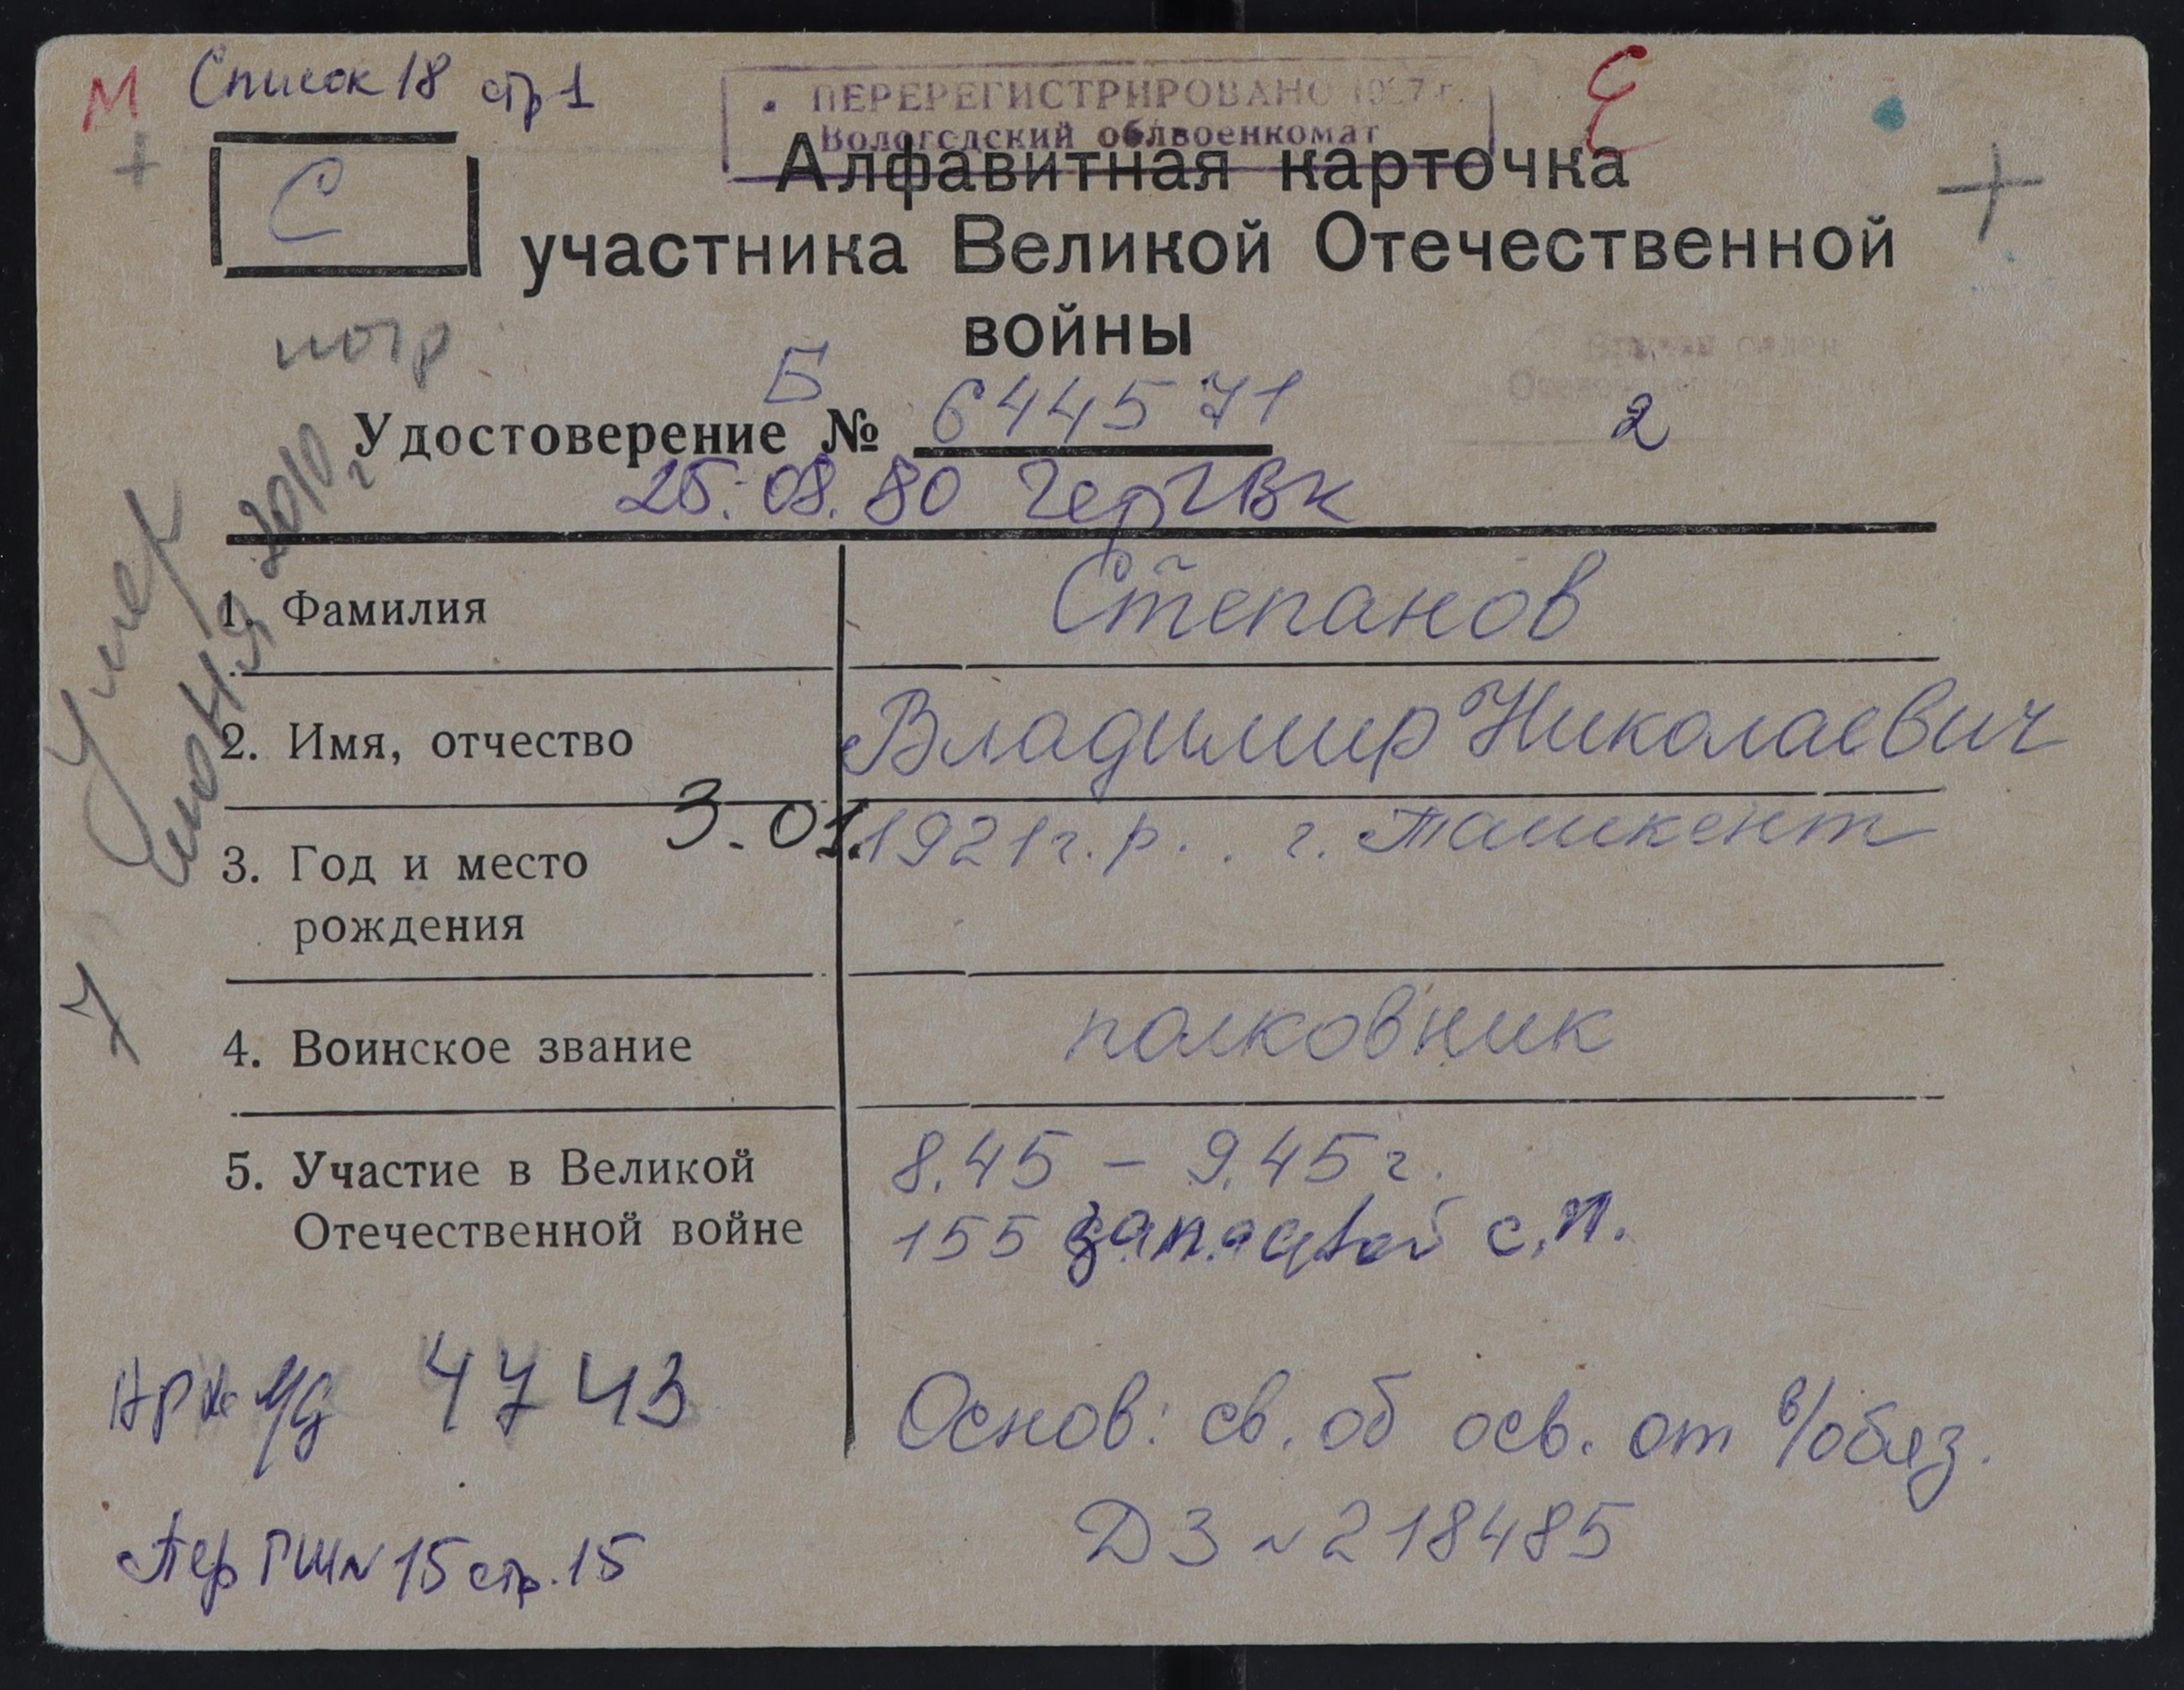 М Список 18 стр 1
ПЕРЕРЕГИСТРИРОВАНО
Вологодский облвоенкомат
С
Алфавитная карточка
участника Великой Отечественной
войны
Б
Удостоверение № 644571
2
25.08.80 Чер ГВК
Умер
июня 2010 г
1. Фамилия Степанов
2. Имя, отчество Владимир Николаевич
3. Год и место рождения 3.01.1921 г.р. г. Ташкент
4. Воинское звание полковник
5. Участие в Великой Отечественной войне 8.45 – 9.45 г.
155 с.п.
4743
Основ: св. об осв. от в/обяз.
ДЗ № 218485
15 стр. 15
7